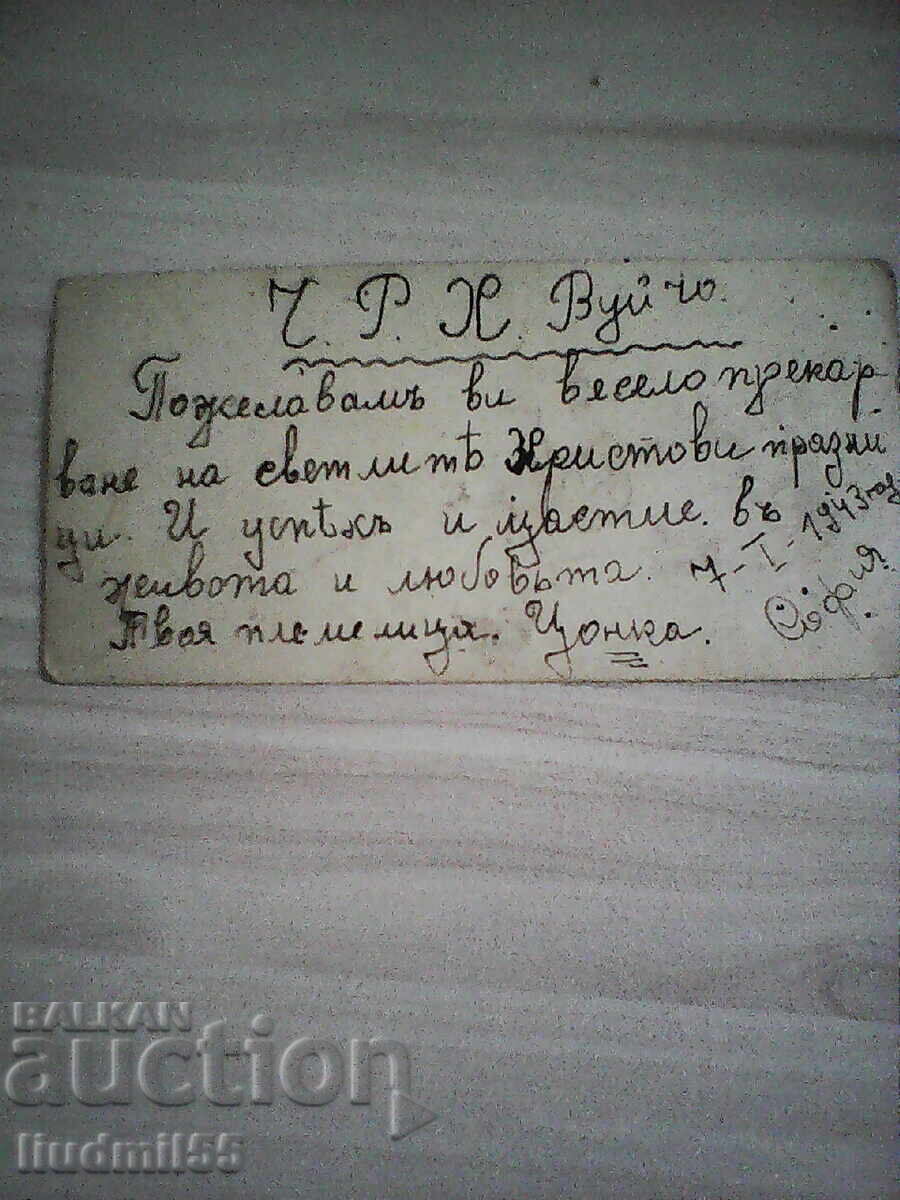 Ч. Р. Х. Вуйчо.
Пожелавамъ ви весело прекар
ване на светлитѣ Христови празни
ци. И успѣхъ и щастие. въ
живота и любовьта.
Твоя племеница. Цонка.
7-I-1943 год
София
BALKAN
auction
liudmil55